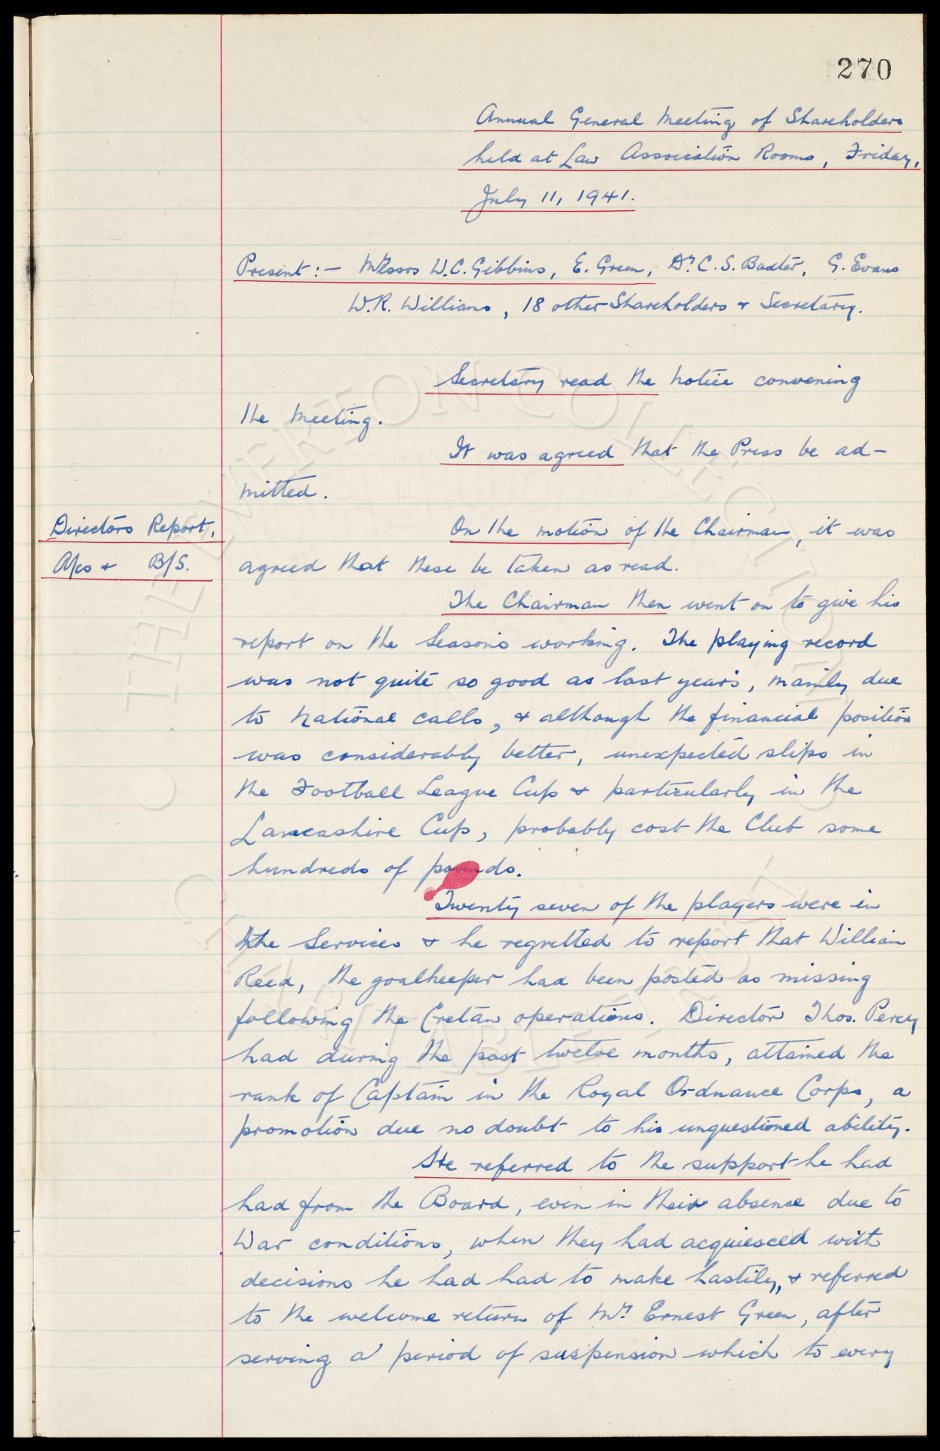 270
Annual General Meeting of Shareholders
held at Law Association Rooms, Friday,
July 11, 1941.
Present:- Messrs W.C. Gibbins, E. Green, Dr. C.S. Baxter, G. Evans
W.R. Williams, 18 other Shareholders & Secretary.
Secretary read the notice convening
the meeting.
It was agreed that the Press be ad-
mitted.
Directors Report,
A/cs & B/S.
On the motion of the Chairman, it was
agreed that these be taken as read.
The Chairman then went on to give his
report on the Season's working. The playing record
was not quite so good as last year's, mainly due
to national calls, & although the financial position
was considerably better, unexpected slips in
the Football League Cup & particularly in the
Lancashire Cup, probably cost the Club some
hundreds of pounds.
Twenty seven of the players were in
the Services & he regretted to report that William
Reed, the goalkeeper had been posted as missing
following the Cretan operations. Director Thos. Percy
had during the past twelve months, attained the
rank of Captain in the Royal Ordnance Corps, a
promotion due no doubt to his unquestioned ability.
He referred to the support he had
had from the Board, even in their absence due to
War conditions, when they had acquiesced with
decisions he had had to make hastily, & referred
to the welcome return of Mr. Ernest Green, after
serving a period of suspension which to every
THE EVERTON COLLECTION
CHARITABLE TRUST